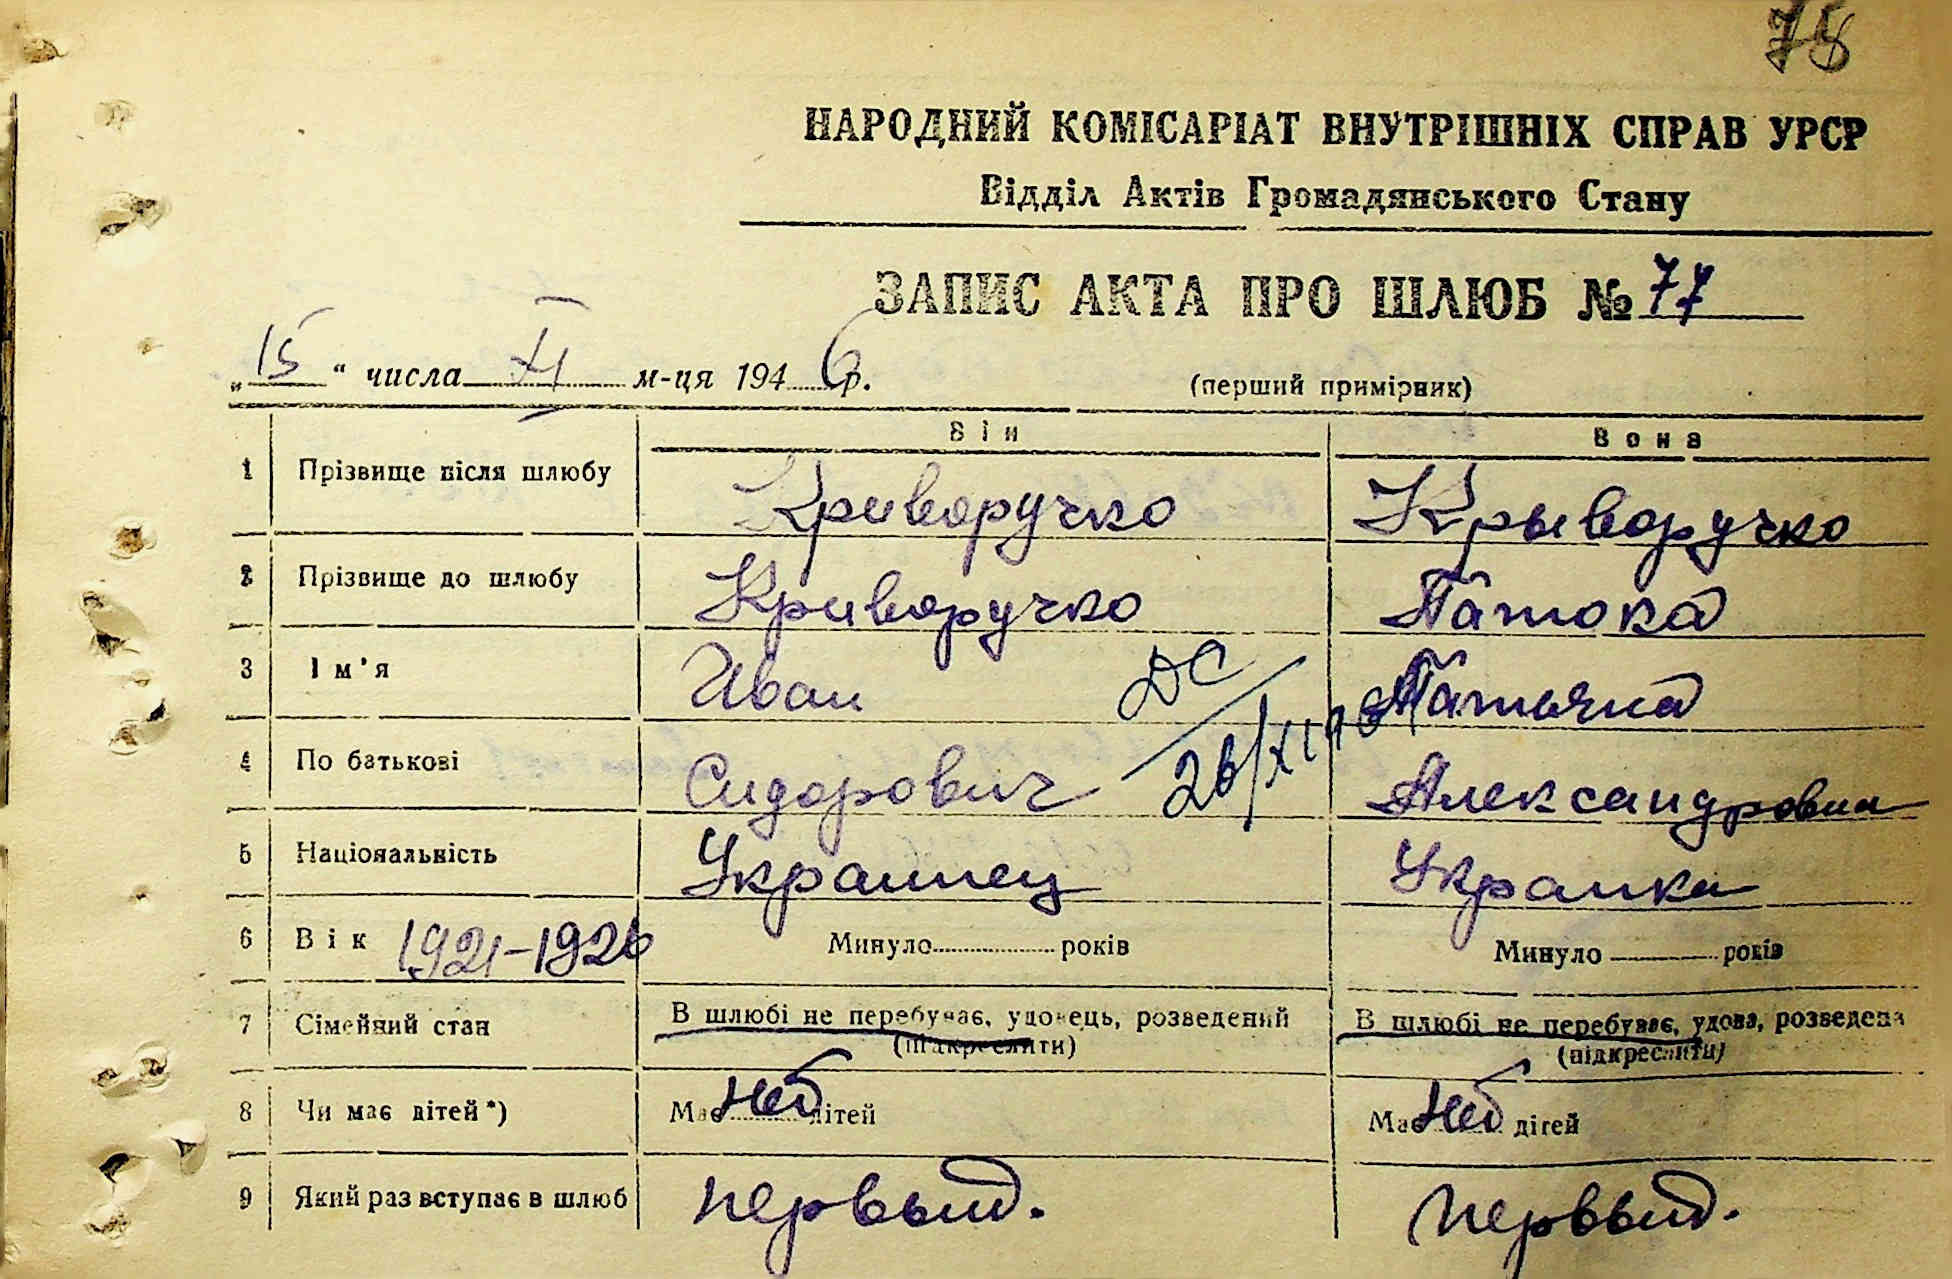 78
НАРОДНИЙ КОМІСАРІАТ ВНУТРІШНІХ СПРАВ УРСР
Відділ Актів Громадянського Стану
ЗАПИС АКТА ПРО ШЛЮБ № 77
„15“ числа XI м-ця 1946 р.
(перший примірник)
Він Вона
1 Прізвище після шлюбу Криворучко Крыворучко
2 Прізвище до шлюбу Криворучко Патока
3 Ім'я Иван Татьяна
ДС
4 По батькові Сидорович Александровна
5 Національність Украинец Украинка
6 Вік 1921-1926 Минуло рокiв Минуло років
7 Сімейний стан В шлюбі не перебуває, удовець, розведений В шлюбі не перебуває, удова, розведена
(підкреслити) (підкреслити)
8 Чи має дітей*) Має нет дітей Має нет дітей
9 Який раз вступає в шлюб первый. первый.